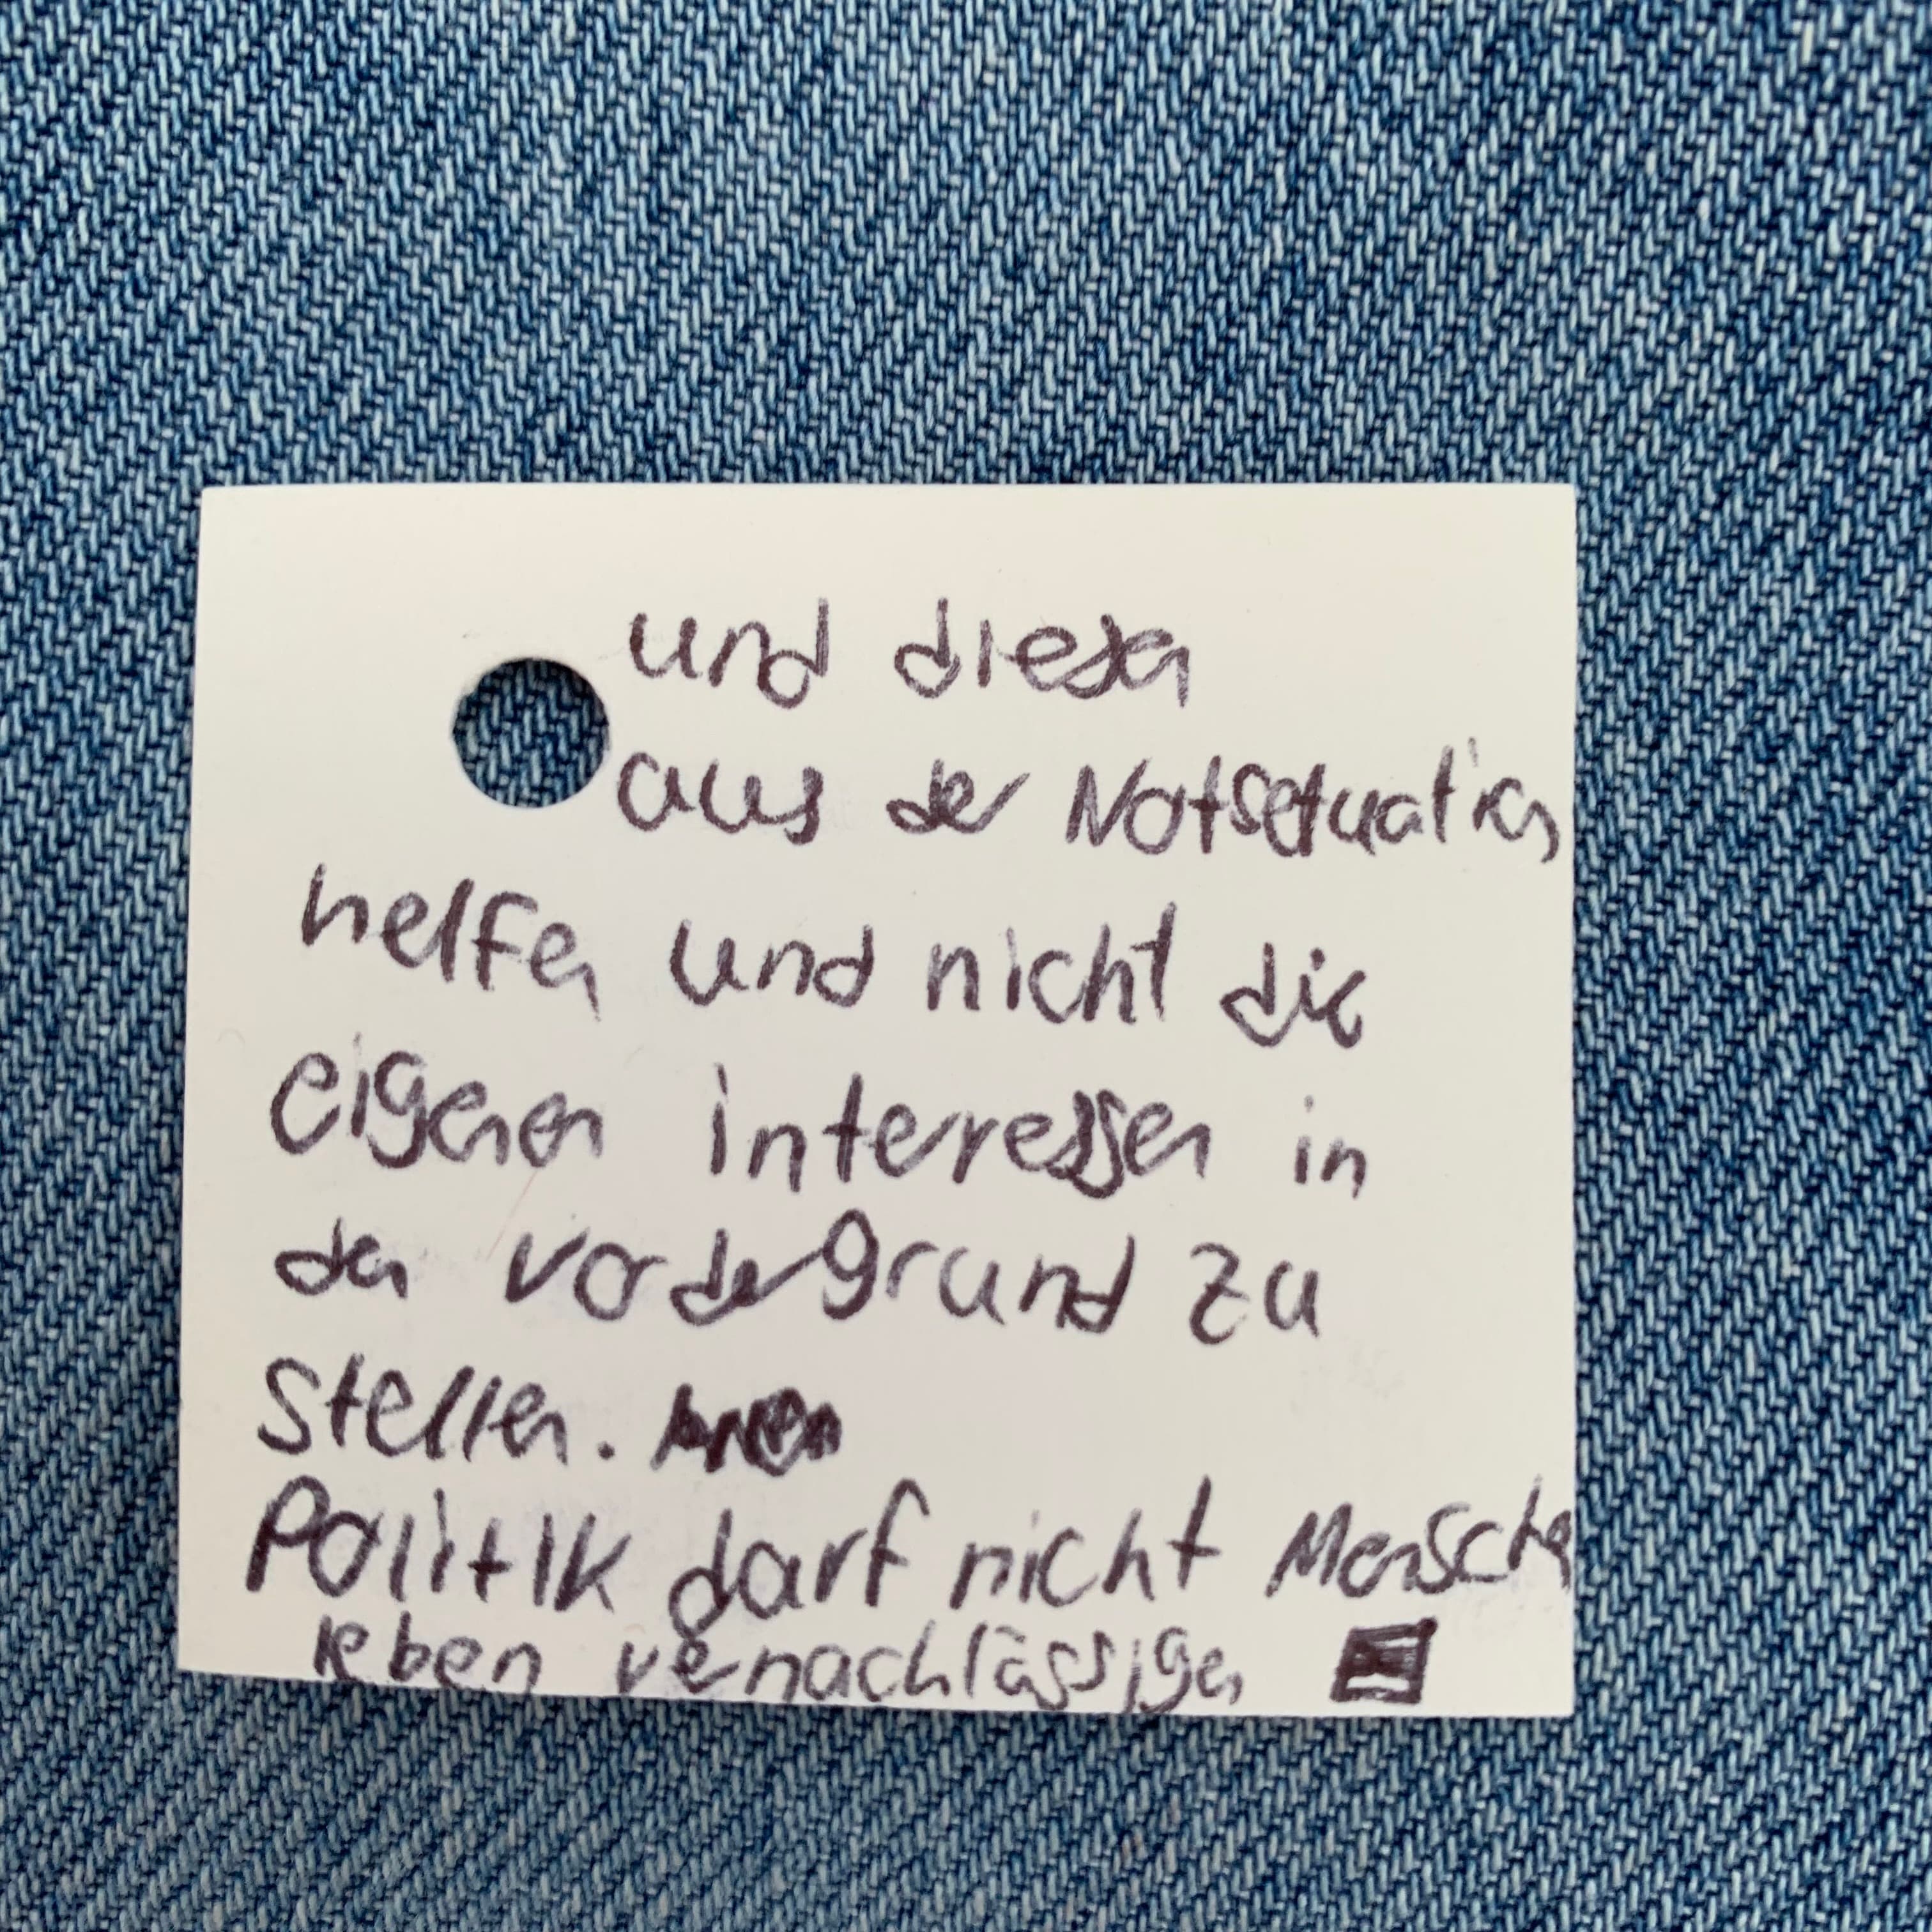 und diesen
aus der Notsetuation
helfen und nicht die
eigenen interressen in
den vordergrund zu
stellen.
Politik darf nicht Menschen
leben vernachlässigen